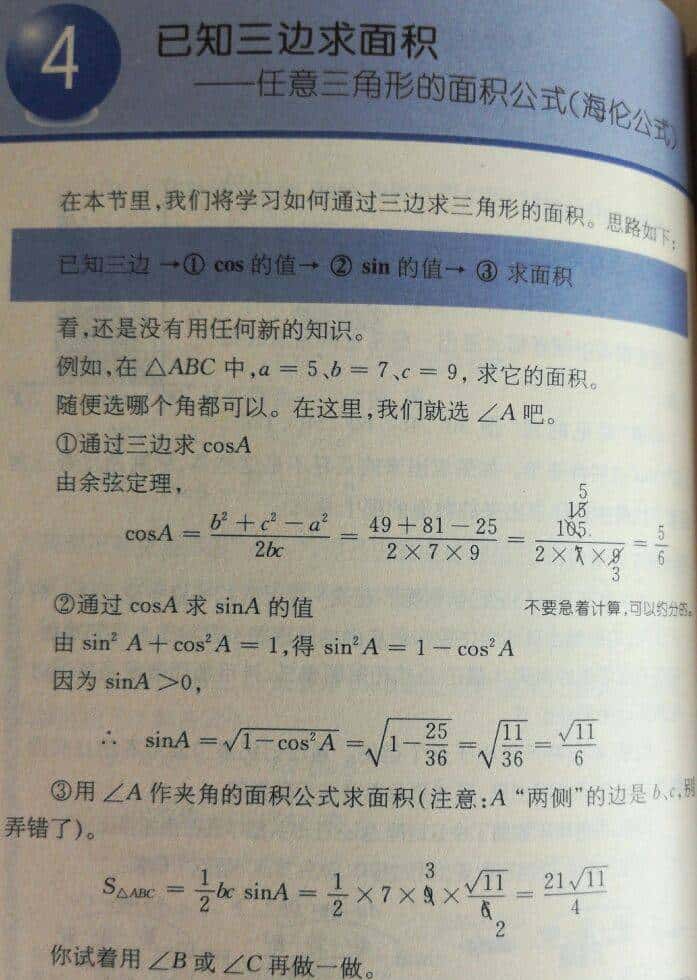 4
已知三边求面积
——任意三角形的面积公式(海伦公式)
在本节里,我们将学习如何通过三边求三角形的面积。思路如下:
已知三边→① cos 的值→ ② sin 的值→ ③ 求面积
看,还是没有用任何新的知识。
例如,在 △ABC 中,a = 5、b = 7、c = 9, 求它的面积。
随便选哪个角都可以。在这里,我们就选 ∠A 吧。
①通过三边求 cosA
由余弦定理,
cosA = (b² + c² − a²)/(2bc) = (49 + 81 − 25)/(2 × 7 × 9) = 5 15 105/(2 × 7 × 9 3) = 5/6
②通过 cosA 求 sinA 的值
不要急着计算,可以约分的。
由 sin² A + cos² A = 1,得 sin² A = 1 − cos² A
因为 sinA >0,
∴ sinA = √(1−cos² A) = √(1−25/36) = √(11/36) = √11/6
③用 ∠A 作夹角的面积公式求面积(注意:A “两侧”的边是 b、c,别
弄错了)。
S△ABC = 1/2 bc sinA = 1/2 × 7 × 9 3 × √11/6 2 = 21√11/4
你试着用 ∠B 或 ∠C 再做一做。